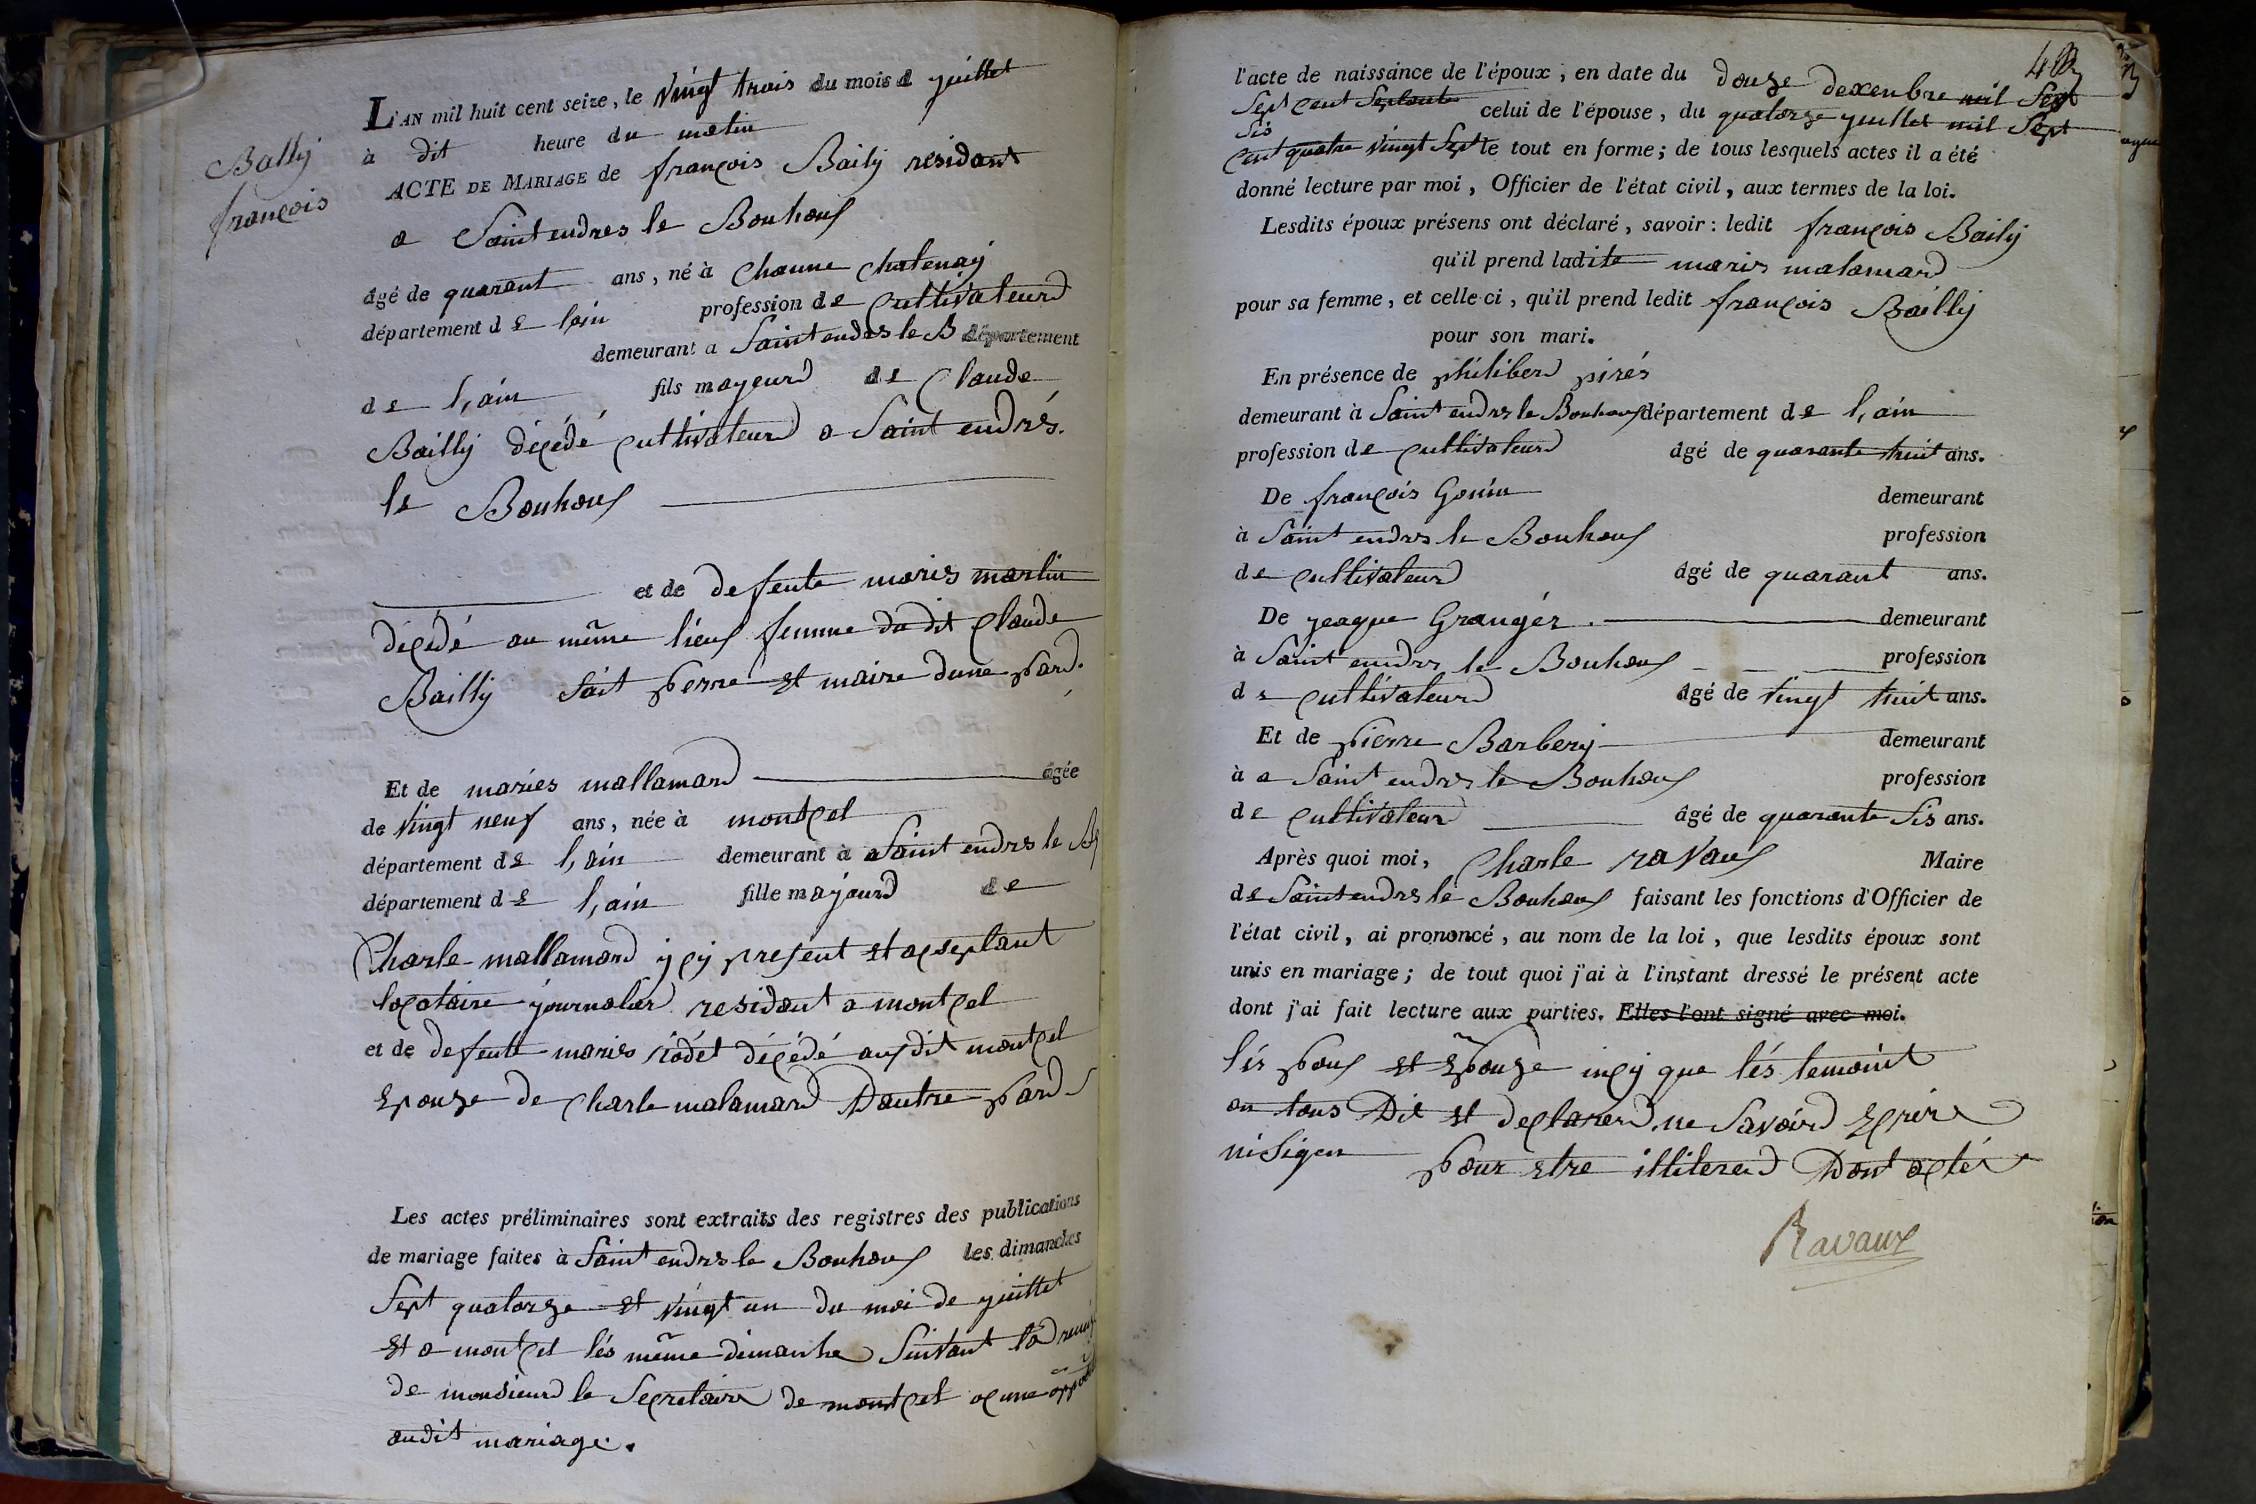 Bally
françois
L'AN mil huit cent seize, le vingt trois du mois d juillet
à dit heure du matin
ACTE DE MARIAGE de françois Baily residant
a Saint endres le Bouhouf
âgé de quarant ans, né à Chaune Chatenay
département de lain profession de Cultivateurd
demeurant a Saint endres le B département
de l,ain fils mayeurd de Claude
Bailly décédé cultivateurd a Saint endrés.
le Bouhouf
et de defente maries martin
décédé au même lieuf femme du dit Claude
Bailly sait perre et maire dune pard.
Et de maries mallamard âgée
de vingt neuf ans, née à montcel
département de l,ain demeurant à a Saint endres le B
département de l,ain fille majeurd de
Charle mallamard ycy present et acseptant
locataire journalier residant a montcel
et de defente maries riodet décédé audit montcel
Epouze de Charle malamard Dautre pard
Les actes préliminaires sont extraits des registres des publications
de mariage faites à Saint endres le Bouhouf les dimanches
Sept quatorze et vingt un du moi de juillet
et a montcel lés même dimanhe Suivant la
de monsieurd le Secretaire de montcel ocune
audit mariage.
48
l'acte de naissance de l'époux, en date du douze dexenbre mil Sept
Sept cent Septante celui de l'épouse, du quatorze juillet mil Sept
Sis
Cent quatre vingt Sept le tout en forme; de tous lesquels actes il a été
donné lecture par moi, Officier de l'état civil, aux termes de la loi.
Lesdits époux présens ont déclaré, savoir: ledit françois Baily
qu'il prend ladite maris malamard
pour sa femme, et celle-ci, qu'il prend ledit françois Bailly
pour son mari.
En présence de philiberd pirés
demeurant à Saint endres le Bouhouf département de l,ain
profession de Cultivateurd âgé de quarante huit ans.
De françois Gonin demeurant
à Saint endres le Bouhouf profession
de Cultivateurd âgé de quarant ans.
De jeaque Granger. demeurant
à Saint endres le Bouhouf profession
de Cultivateurd âgé de vingt huit ans.
Et de pierre Barbery demeurant
à a Saint endres le Bouhouf profession
de Cultivateurd âgé de quarante Sis ans.
Après quoi moi, Charle ravauf Maire
de Saint endres le Bouhouf faisant les fonctions d'Officier de
l'état civil, ai prononcé, au nom de la loi, que lesdits époux sont
unis en mariage; de tout quoi j'ai à l'instant dressé le présent acte
dont j'ai fait lecture aux parties. Elles l'ont signé avec moi.
lés pouf et Epouze incy que lés temoint
on tous Dit et declarerd ne Savoird Ecrire
ni Sigen pour etre illitererd Dont actés
Ravaux